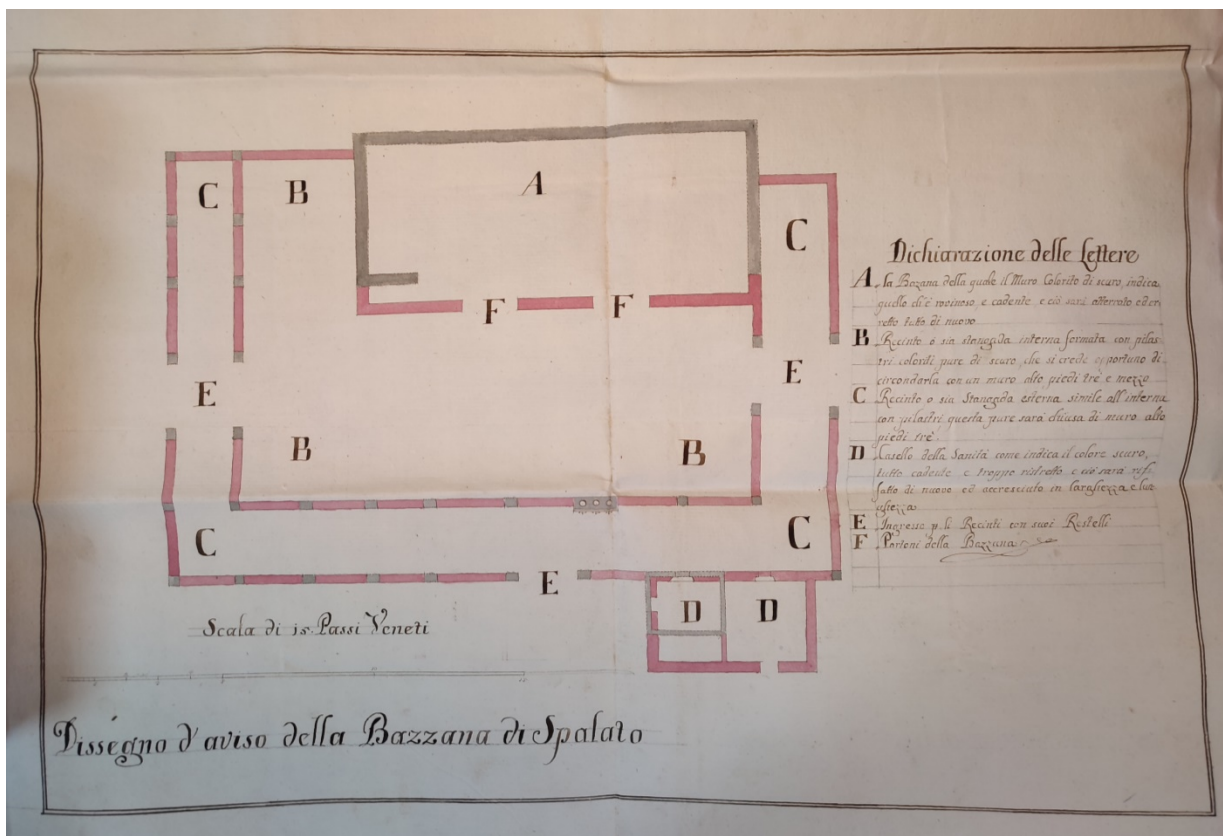 C
B
A
C
F
F
E
E
B
B
C
C
E
D
D
Dichiarazione delle Lettere
A la Bazana della quale il Muro Colorito di scuro, indica
quello ch'è rovinoso, e cadente, e ciò sarà atterrato ed er-
retto tutto di nuovo
B Recinto ò sia stangada interna formata con pilas-
tri coloriti pure di scuro, che si crede opportuno di
circondarla con un muro alto piedi trè e mezzo
C Recinto o sia Stangada esterna simile all'interna
con pilastri questa pure sarà chiusa di muro alto
piedi trè.
D Casello della Sanità come indica il colore scuro,
tutto cadente e troppo ristretto e ciò sarà rif-
fatto di nuovo ed accresciuto in larghezza e lun-
ghezza
E Ingresso p. li Recinti con suoi Restelli
F Portoni della Bazzana
Scala di 15 Passi Veneti
Dissegno d'aviso della Bazzana di Spalato